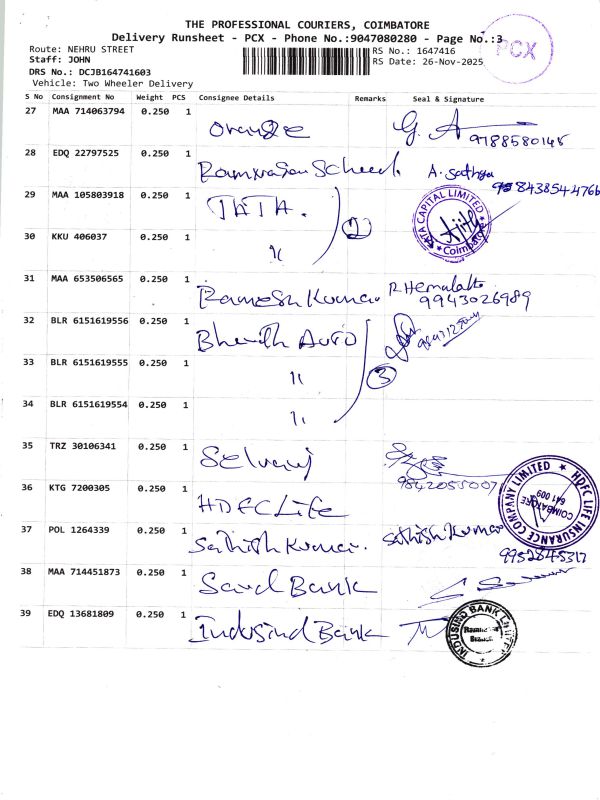 THE PROFESSIONAL COURIERS, COIMBATORE
Delivery Runsheet - PCX - Phone No.:9047080280 - Page No.:3
PCX
Route: NEHRU STREET
RS No.: 1647416
Staff: JOHN
RS Date: 26-Nov-2025
DRS No.: DCJB164741603
Vehicle: Two Wheeler Delivery
S No Consignment No Weight PCS Consignee Details Remarks Seal & Signature
27 MAA 714063794 0.250 1 Orange G. A 9188580145
28 EDQ 22797525 0.250 1 A. Sathya
29 MAA 105803918 0.250 1 TATA. 2 TATA CAPITAL LIMITED Coimbatore
30 KKU 406037 0.250 1 "
31 MAA 653506565 0.250 1 Ramesh Kumar R Hemalatha 9943026989
32 BLR 6151619556 0.250 1 Bharath Auto
33 BLR 6151619555 0.250 1 " 3
34 BLR 6151619554 0.250 1 "
35 TRZ 30106341 0.250 1 Selvaraj
36 KTG 7200305 0.250 1 HDFC Life HDFC LIFE INSURANCE COMPANY LIMITED COIMBATORE 641 009
37 POL 1264339 0.250 1 Sathish Kumar. Sathish Kumar 9952845317
38 MAA 714451873 0.250 1 Bank
39 EDQ 13681809 0.250 1 Indusind Bank INDUSIND BANK LIMITED Branch